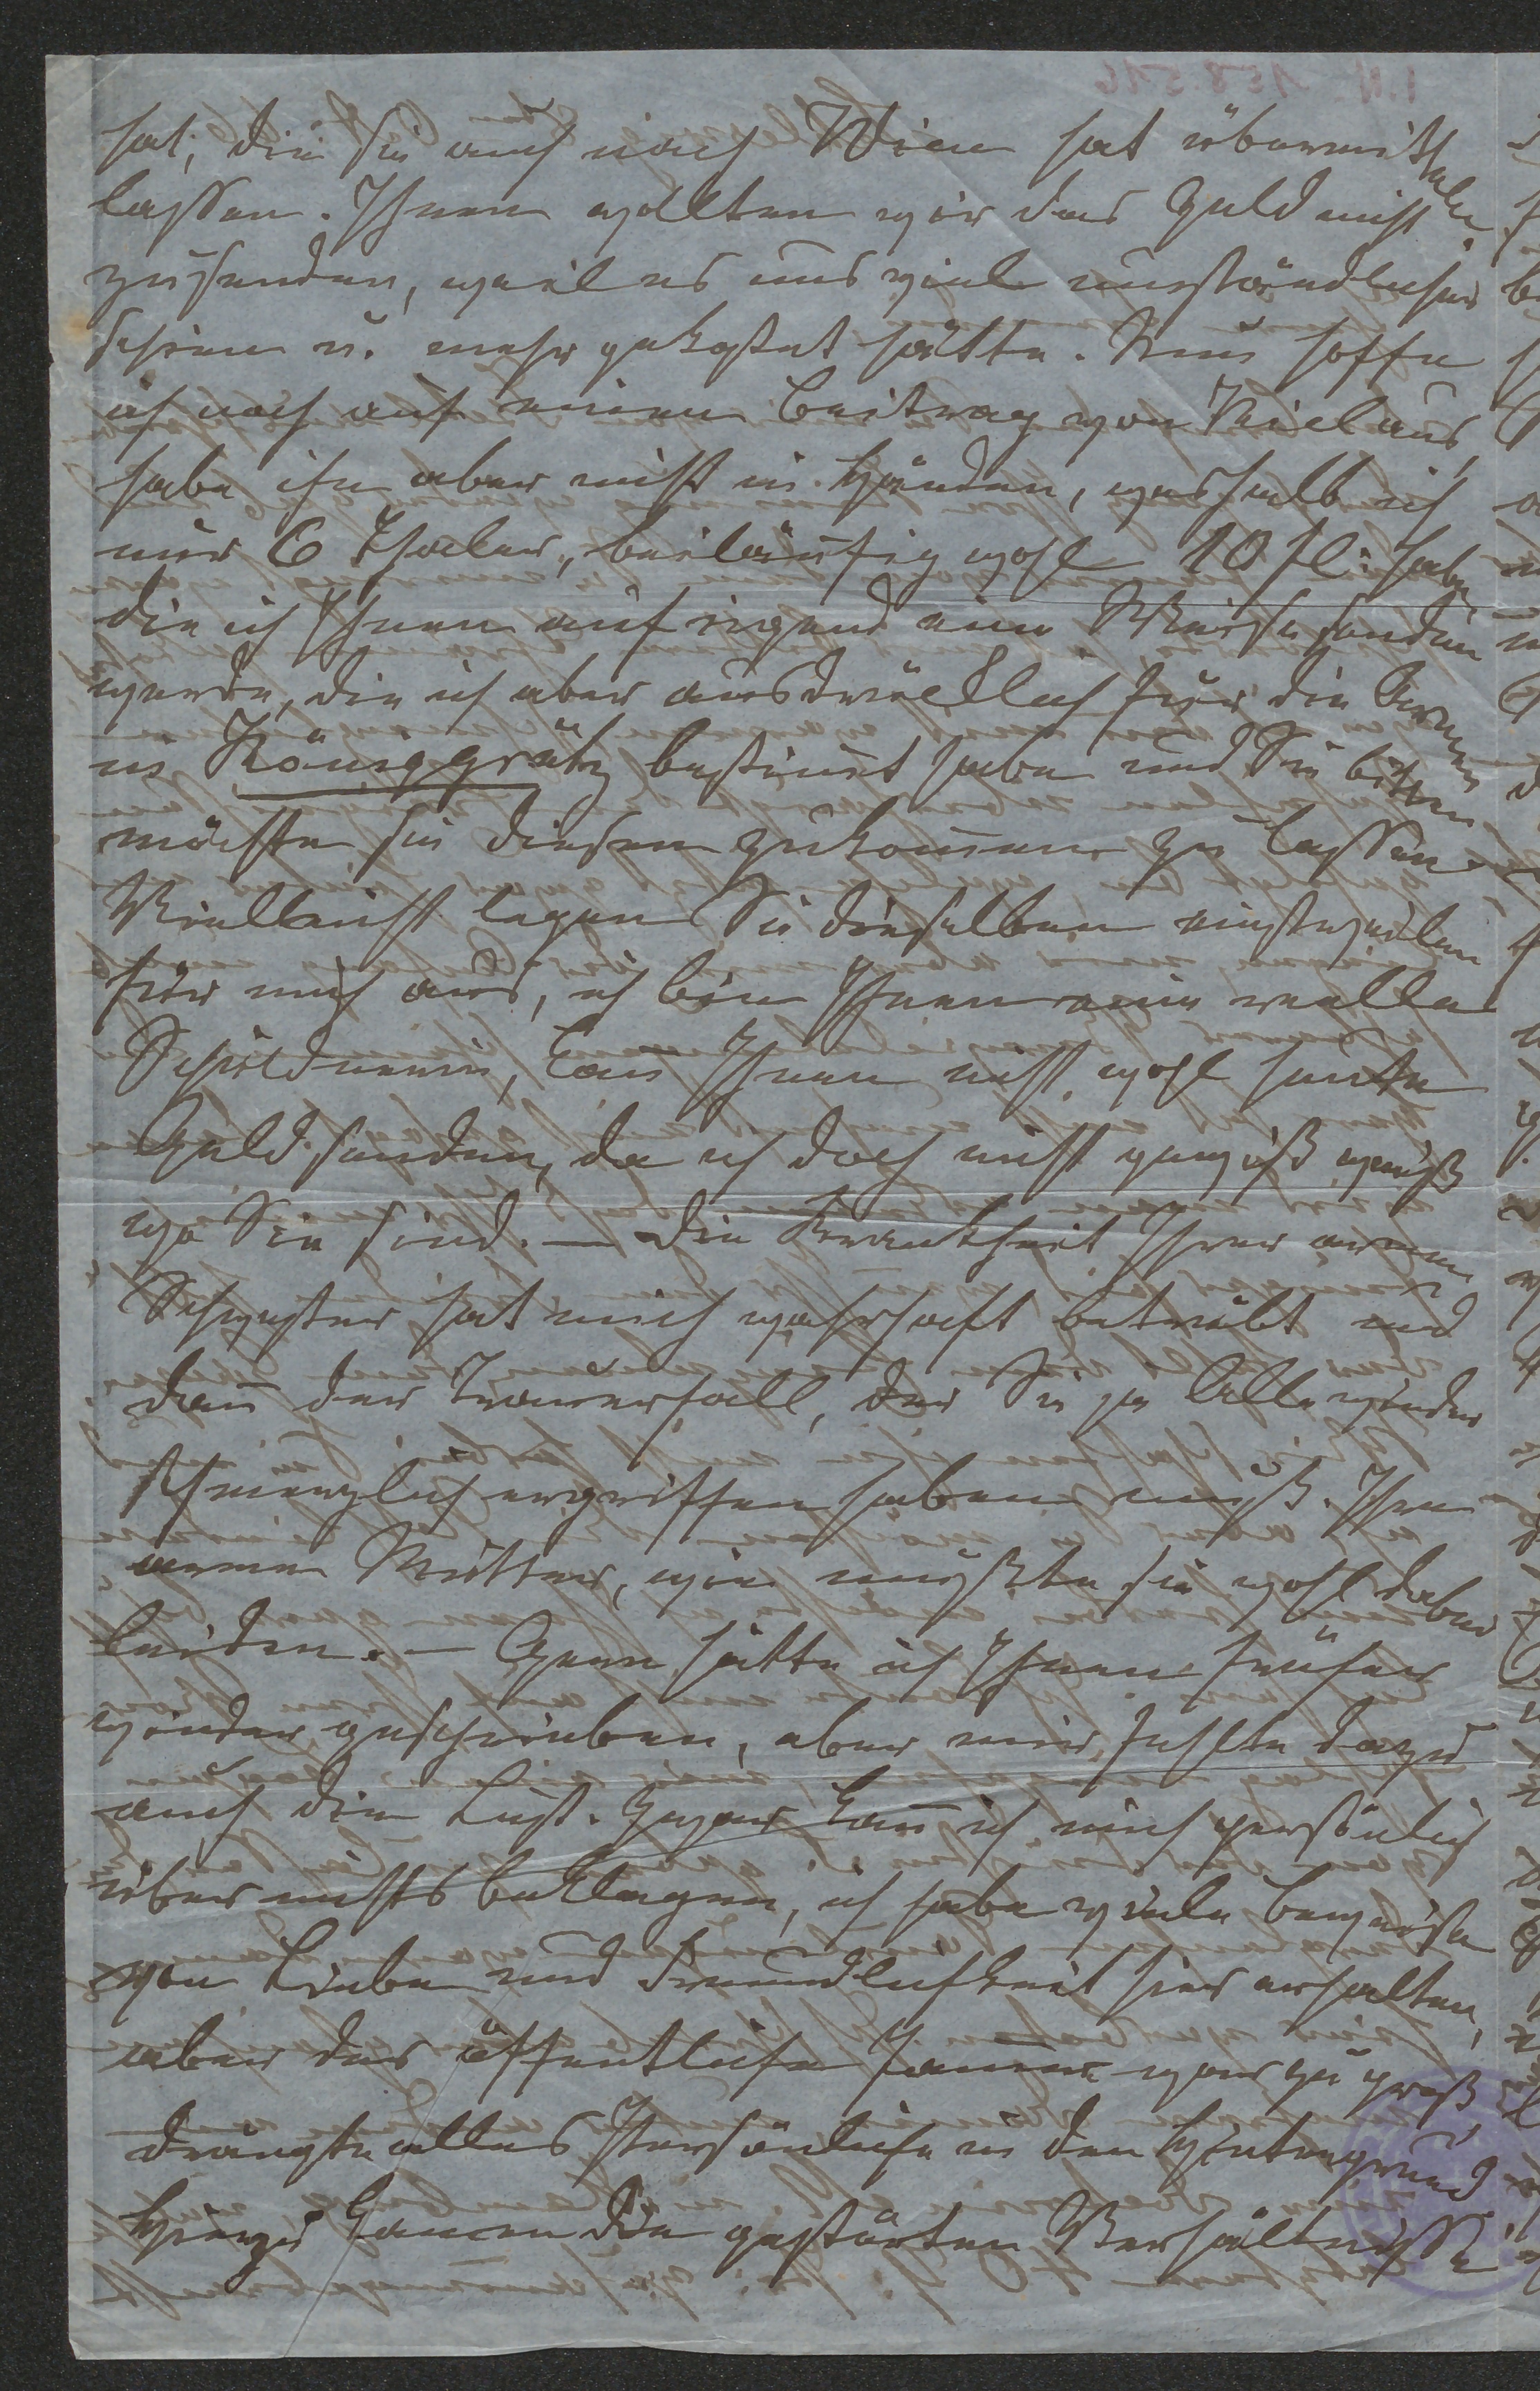 hat, die sie auch nach Wien hat übermitteln
lassen. Ihnen wollten wir das Geld nicht
zusenden, weil es uns viel umständlicher
schien u. mehr gekostet hätte. Nun hoffe
ich noch auf einen Beitrag von Kiel aus,
habe ihn aber nicht in Händen, weshalb ich
nur 6 Thaler, beiläufig wohl 10 fl. habe,
die ich Ihnen auf irgend eine Weise senden
werde, die ich aber ausdrücklich für die Armen
in Königgrätz bestimt habe und Sie bitten
möchte sie diesen zukommen zu lassen.
Vielleicht legen Sie dieselben einstweilen
für mich aus, ich bin Ihnen eine reelle
Schuldnerin, kan Ihnen nicht wohl heute
Geld senden, da ich doch nicht gewiß weiß
wo Sie sind. — Die Krankheit Ihrer armen
Schwester hat mich wahrhaft betrübt und
dan der Trauerfall, der Sie ja Alle wieder
schmerzlich ergriffen haben muß. Ihre
arme Mutter, wie mußte sie wohl dabei
leiden. — Gern hätte ich Ihnen früher
wieder geschrieben, aber mir fehlte dazu
auch die Lust. Zwar kan ich mich persönlich
über nichts beklagen, ich habe viele Beweise
von Liebe und Freundlichkeit hier erhalten,
aber der öffentliche Jammer war zu groß,
drängte alles Persönliche in den Hintergrund.
Hierzu kamen die gestörten Verhältnisse